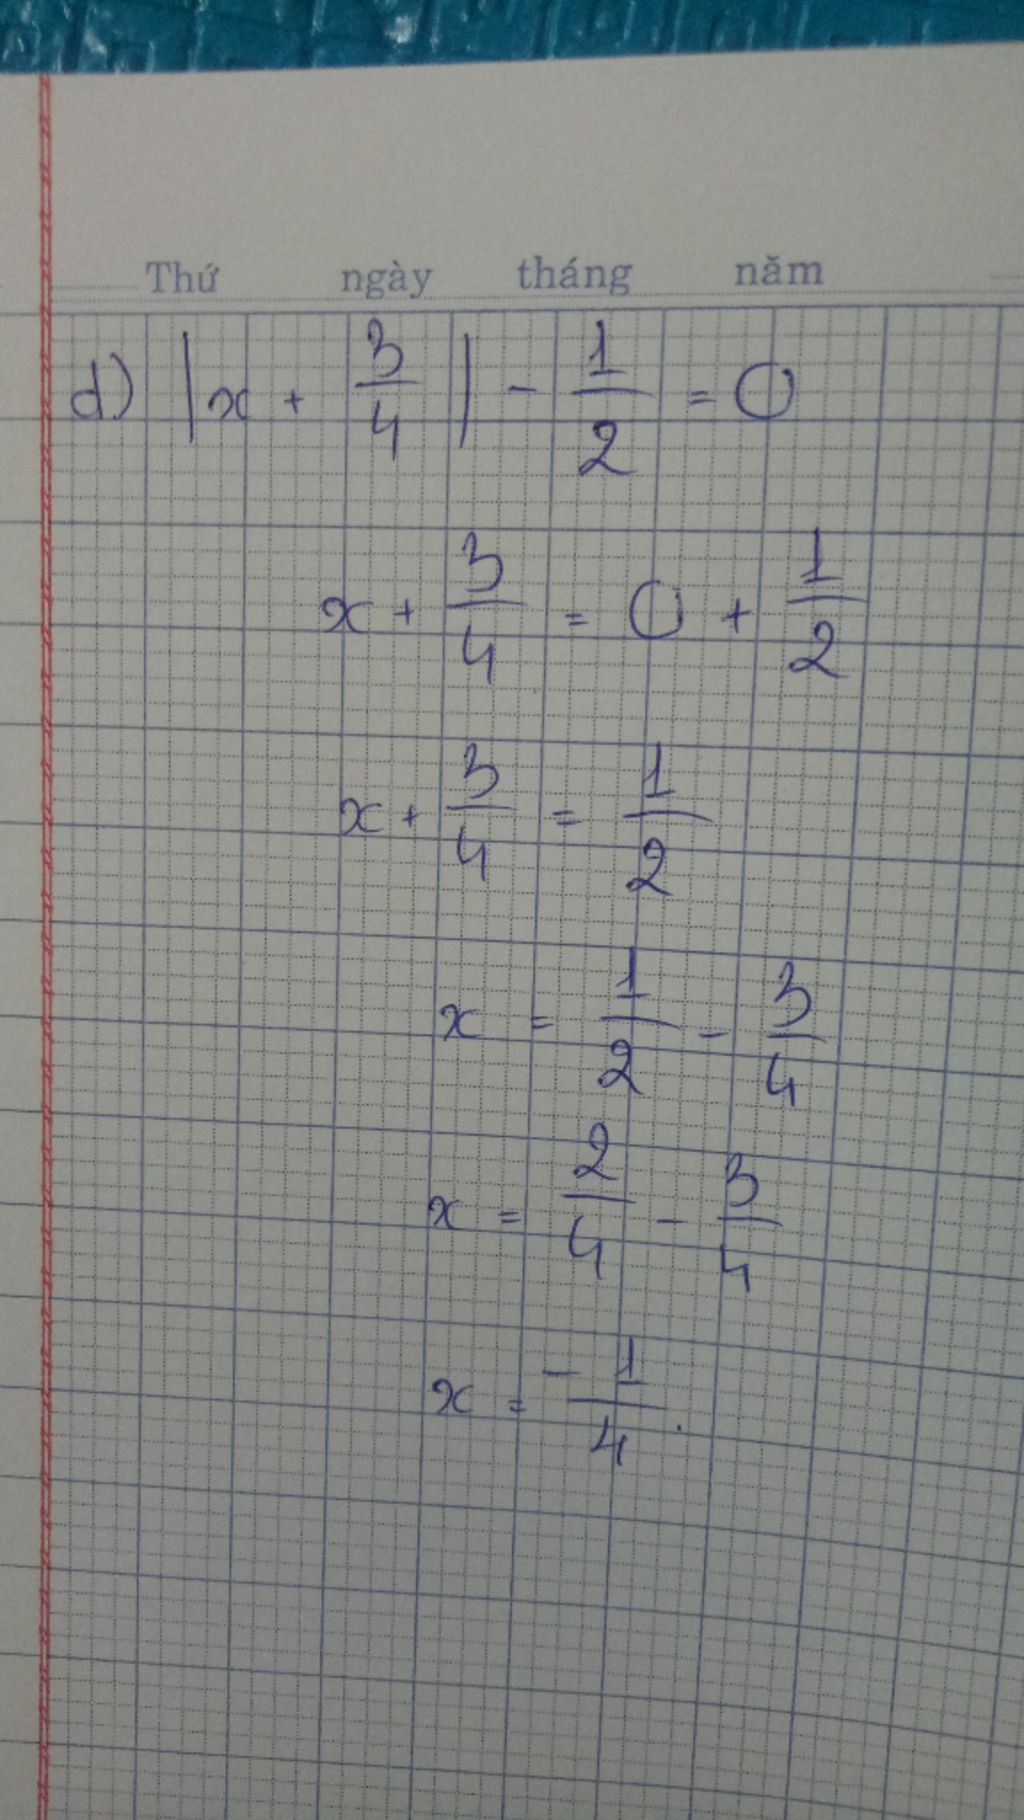 Thứ ngày tháng năm
d) |x + 3/4| - 1/2 = 0
x + 3/4 = 0 + 1/2
x + 3/4 = 1/2
x = 1/2 - 3/4
x = 2/4 - 3/4
x = -1/4.